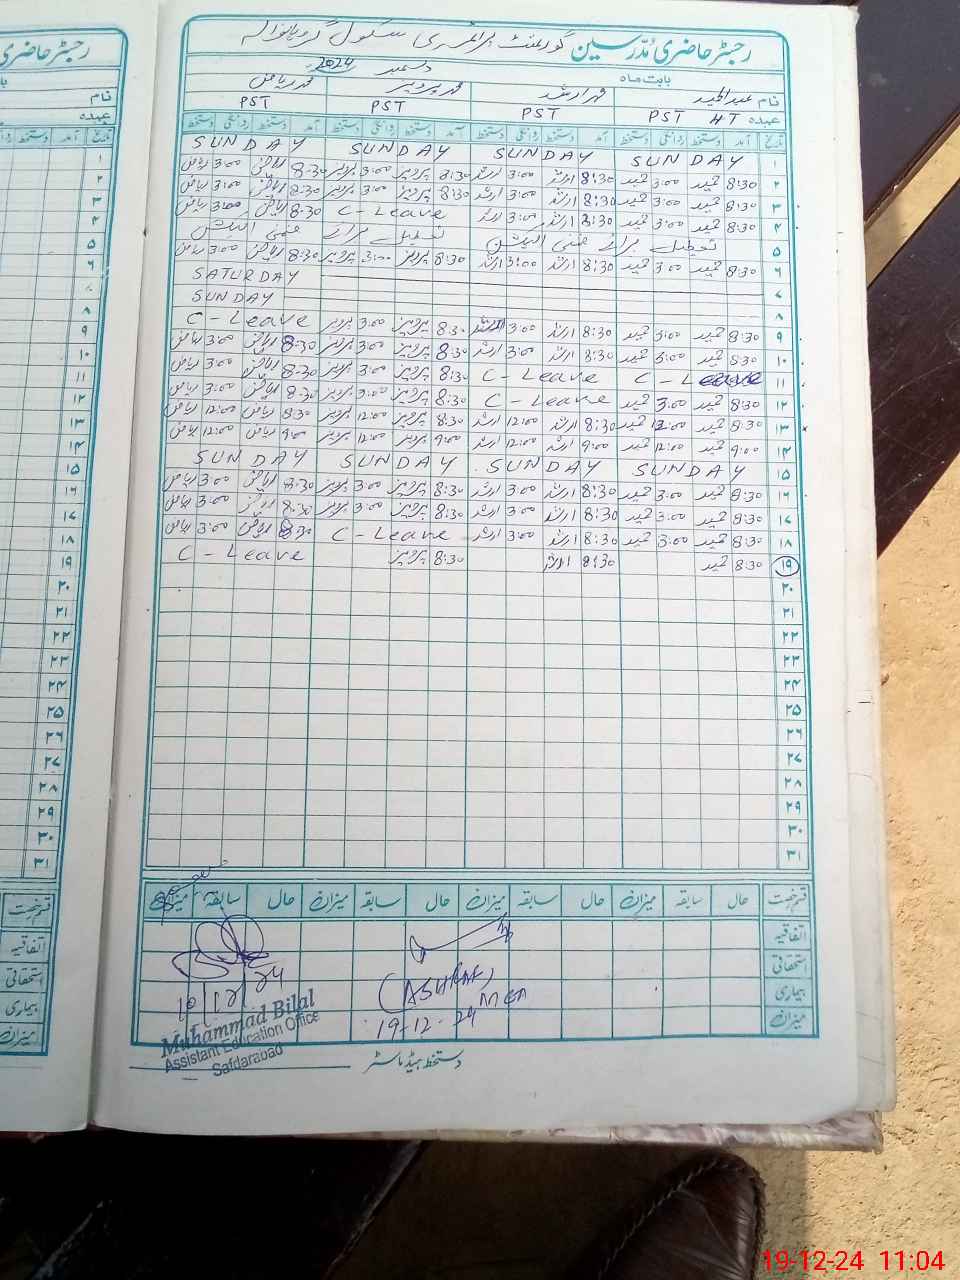 رجسٹر حاضری مُدرسین گورنمنٹ پرائمری سکول
بابت ماہ دسمبر 2024
نام عبدالحمید محمد ارشد محمد پرویز محمد ریاض
عہدہ PST HT PST PST PST
تاریخ آمد دستخط روانگی دستخط آمد دستخط روانگی دستخط آمد دستخط روانگی دستخط آمد دستخط روانگی دستخط
۱ SUNDAY SUNDAY SUNDAY SUNDAY
۲ 8:30 حمید 3:00 حمید 8:30 ارشد 3:00 ارشد 8:30 پرویز 3:00 پرویز 8:30 ریاض 3:00 ریاض
۳ 8:30 حمید 3:00 حمید 8:30 ارشد 3:00 ارشد 8:30 پرویز 3:00 پرویز 8:30 ریاض 3:00 ریاض
۴ 8:30 حمید 3:00 حمید 8:30 ارشد 3:00 ارشد C-Leave 8:30 ریاض 3:00 ریاض
۵ تعطیل برائے ضمنی الیکشن تعطیل برائے ضمنی الیکشن
۶ 8:30 حمید 3:00 حمید 8:30 ارشد 3:00 ارشد 8:30 پرویز 3:00 پرویز 8:30 ریاض 3:00 ریاض
۷ SATURDAY
۸ SUNDAY
۹ 8:30 حمید 3:00 حمید 8:30 ارشد 3:00 ارشد 8:30 پرویز 3:00 پرویز C-Leave
۱۰ 8:30 حمید 3:00 حمید 8:30 ارشد 3:00 ارشد 8:30 پرویز 3:00 پرویز 8:30 ریاض 3:00 ریاض
۱۱ C-Leave C-Leave 8:30 پرویز 3:00 پرویز 8:30 ریاض 3:00 ریاض
۱۲ 8:30 حمید 3:00 حمید C-Leave 8:30 پرویز 3:00 پرویز 8:30 ریاض 3:00 ریاض
۱۳ 8:30 حمید 12:00 حمید 8:30 ارشد 12:00 ارشد 8:30 پرویز 12:00 پرویز 8:30 ریاض 12:00 ریاض
۱۴ 9:00 حمید 12:00 حمید 9:00 ارشد 12:00 ارشد 9:00 پرویز 12:00 پرویز 9:00 ریاض 12:00 ریاض
۱۵ SUNDAY SUNDAY SUNDAY SUNDAY
۱۶ 8:30 حمید 3:00 حمید 8:30 ارشد 3:00 ارشد 8:30 پرویز 3:00 پرویز 8:30 ریاض 3:00 ریاض
۱۷ 8:30 حمید 3:00 حمید 8:30 ارشد 3:00 ارشد 8:30 پرویز 3:00 پرویز 8:30 ریاض 3:00 ریاض
۱۸ 8:30 حمید 3:00 حمید 8:30 ارشد 3:00 ارشد C-Leave 8:30 ریاض 3:00 ریاض
۱۹ 8:30 حمید 8:30 ارشد 8:30 پرویز C-Leave
۲۰
۲۱
۲۲
۲۳
۲۴
۲۵
۲۶
۲۷
۲۸
۲۹
۳۰
۳۱
قسم رخصت حال سابقہ میزان حال سابقہ میزان حال سابقہ میزان حال سابقہ میزان
اتفاقیہ
استحقاقی
بیماری
میزان
10/12/24
(ASHRAF)
MEA
19-12-24
Muhammad Bilal
Assistant Education Office
Safdarabad
دستخط ہیڈ ماسٹر
19-12-24 11:04